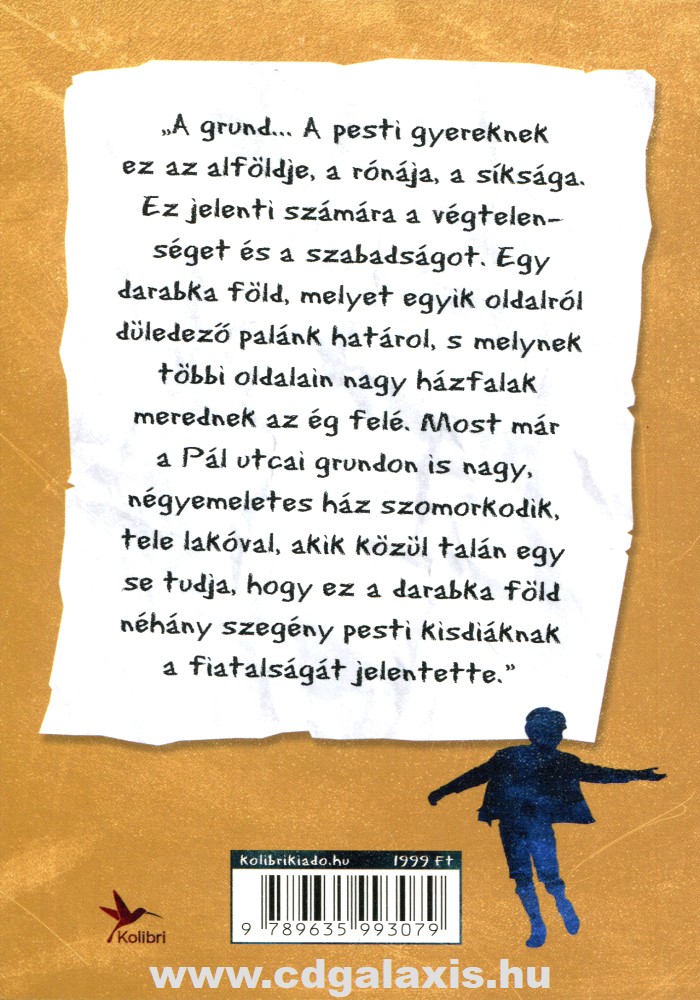 „A grund... A pesti gyereknek
ez az alföldje, a rónája, a síksága.
Ez jelenti számára a végtelen-
séget és a szabadságot. Egy
darabka föld, melyet egyik oldalról
düledező palánk határol, s melynek
többi oldalain nagy házfalak
merednek az ég felé. Most már
a Pál utcai grundon is nagy,
négyemeletes ház szomorkodik,
tele lakóval, akik közül talán egy
se tudja, hogy ez a darabka föld
néhány szegény pesti kisdiáknak
a fiatalságát jelentette.”
KolibriKiado.hu 1999 Ft
9 789635 993079
Kolibri
www.cdgalaxis.hu